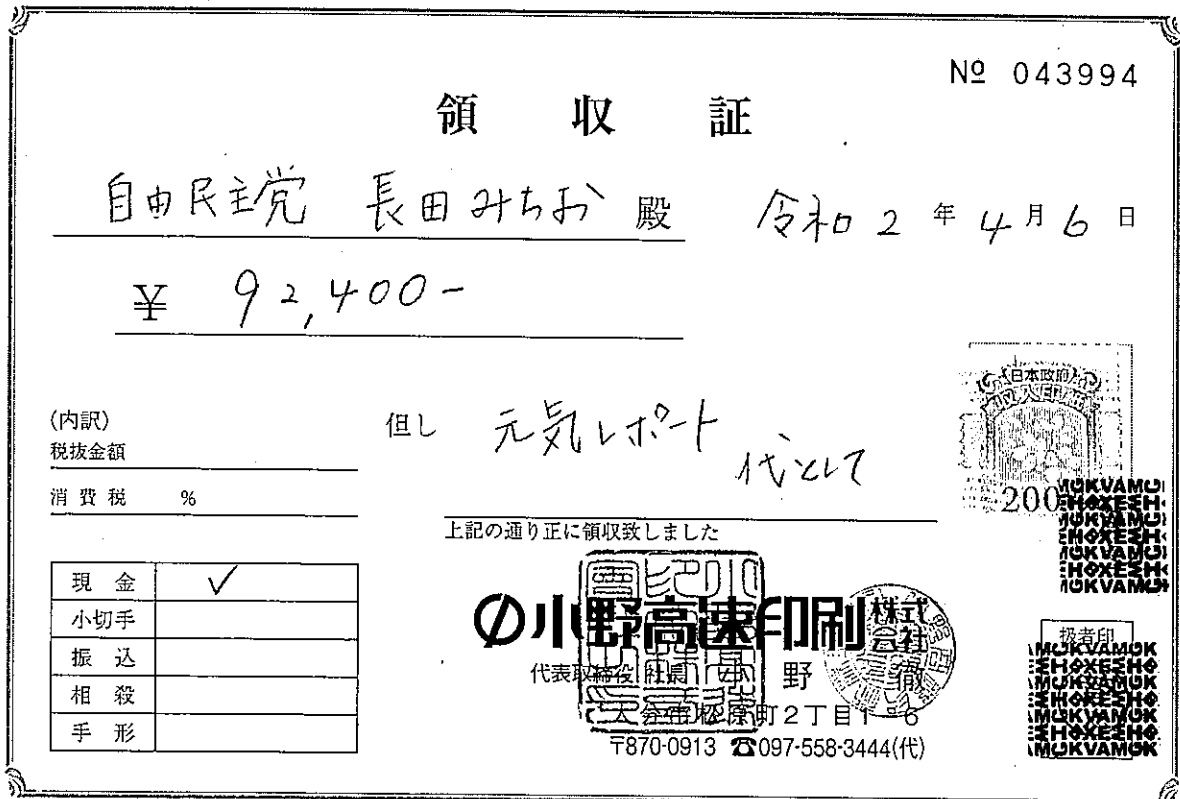 № 043994
領収証
自由民主党 長田みちお 殿 令和2年4月6日
¥ 92,400-
(内訳)
税抜金額
消費税 %
但し 元気レポート代として
上記の通り正に領収致しました
現金 ✓
小切手
振込
相殺
手形
日本政府
収入印紙
200
小野高速印刷株式会社
代表取締役 社長 小野 徹
大分市松原町2丁目1-6
〒870-0913 ☎097-558-3444(代)
扱者印